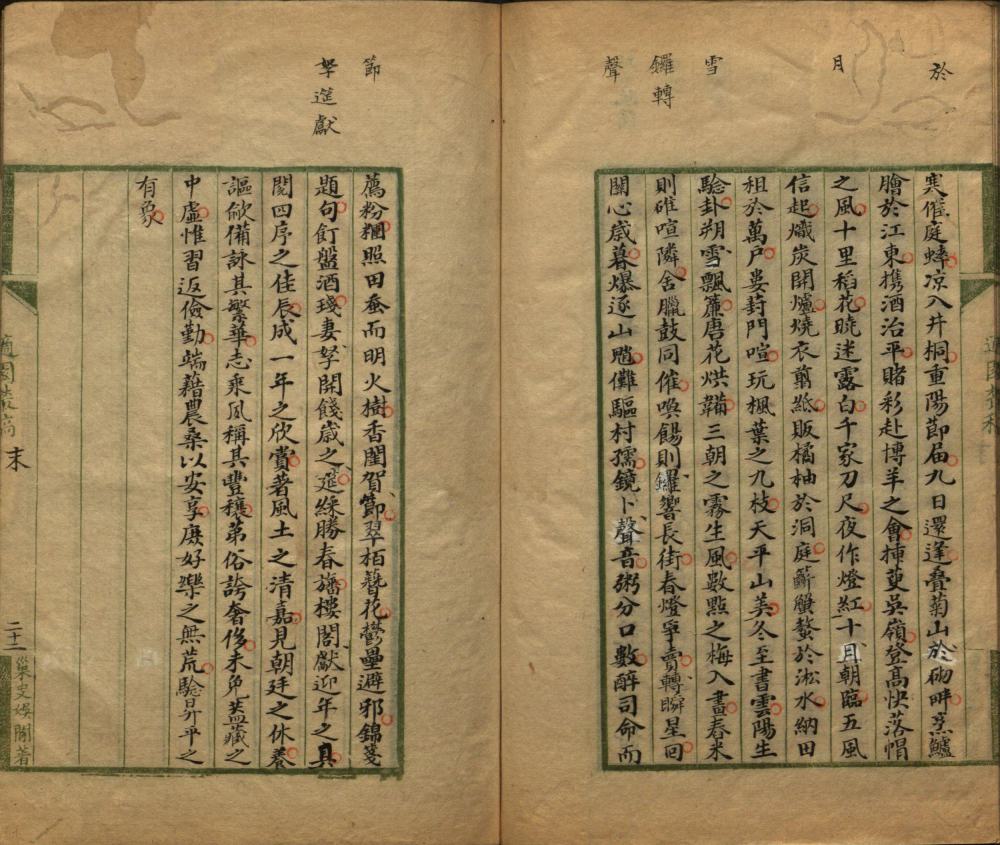 於
月
雪
鑼轉
聲
寒催庭蟀凉入井桐重陽節届九日還逢疊菊山於砌畔烹鱸
膾於江東携酒治平賭彩赴博羊之會揷茰吳嶺登髙快落㡌
之風十里稻花曉迷露白千家刀尺夜作燈紅十月朝臨五風
信起熾炭開爐燒衣剪紙販橘柚於洞庭籪蟹螯於淞水納田
租於萬戶婁葑門喧玩楓葉之九枝天平山美冬至書雲陽生
驗卦朔雪飄簾唐花烘鞴三朝之霧生風數點之梅入畫舂米
則碓喧隣舍臘鼓同催喚餳則鑼響長街春燈爭賣轉瞬星回
關心歲暮爆逐山魈儺驅村孺鏡卜聲音粥分口數醉司命而
薦粉糰照田蚕而明火樹香閨賀節翠栢簪花鬱壘避邪錦箋
題句飣盤酒琖妻孥開餞歲之筵綵勝春旛樓閣獻迎年之具
閱四序之佳辰成一年之欣賞著風土之清嘉見朝廷之休養
謳歈備詠其繁華志乘夙稱其豐穰第俗誇奢侈未免葢藏之
中虛惟習返儉勤端藉農桑以安享庶好樂之無荒驗昇平之
有象
節
孥筵獻
適園叢稿
末
二十二
巢叟娛閒著